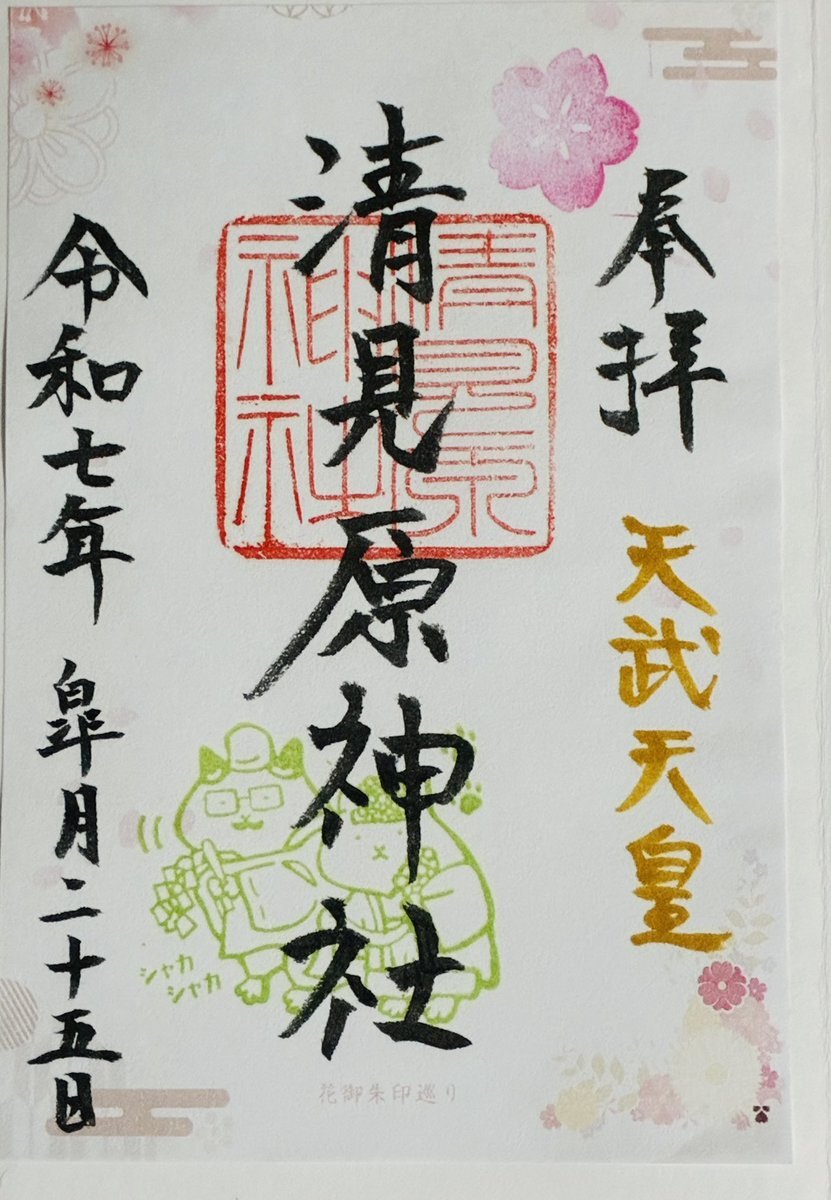 奉拝
天武天皇
清見原神社
清見原
神社
令和七年 皐月二十五日
シャカ
シャカ
花御朱印巡り